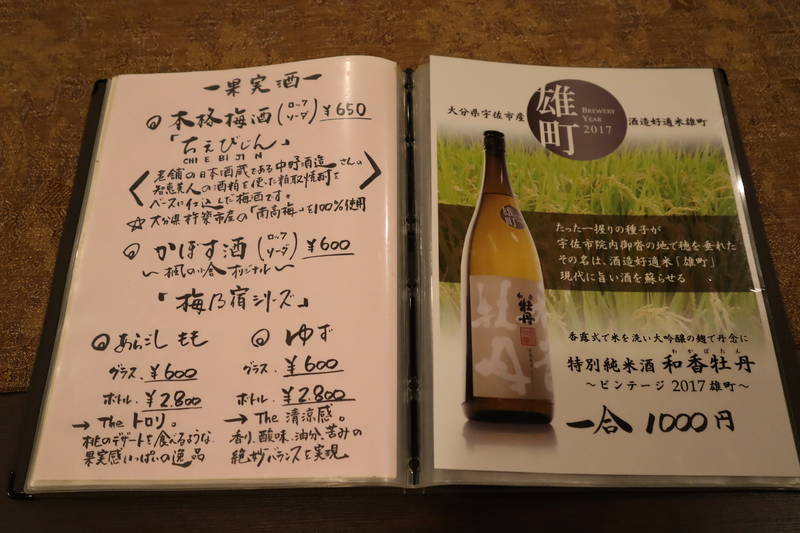 ー果実酒ー
本格梅酒(ロック ソーダ) ¥650
「ちえびじん」
CHIEBIJIN
老舗の日本酒蔵である中野酒造さんの
智恵美人の酒粕を使った粕取焼酎を
ベースに仕込んだ梅酒です。
☆大分県杵築市産の「南高梅」を100%使用
かぼす酒(ロック ソーダ) ¥600
〜楓の小舎オリジナル〜
「梅乃宿シリーズ」
あらごしもも
グラス. ¥600
ボトル. ¥2.800
→Theトロリ。
桃のデザートを食べるような
果実感いっぱいの逸品
ゆず
グラス. ¥600
ボトル. ¥2.800
→The清涼感。
香り、酸味、油分、苦みの
絶妙バランスを実現
大分県宇佐市産
雄町
BREWERY
YEAR
2017
酒造好適米雄町
たった一握りの種子が
宇佐市院内御沓の地で穂を垂れた
その名は、酒造好適米「雄町」
現代に旨い酒を蘇らせる
雄町
牡丹
香露式で米を洗い大吟醸の麹で丹念に
わかぼたん
特別純米酒 和香牡丹
〜ビンテージ 2017 雄町〜
一合 1000円